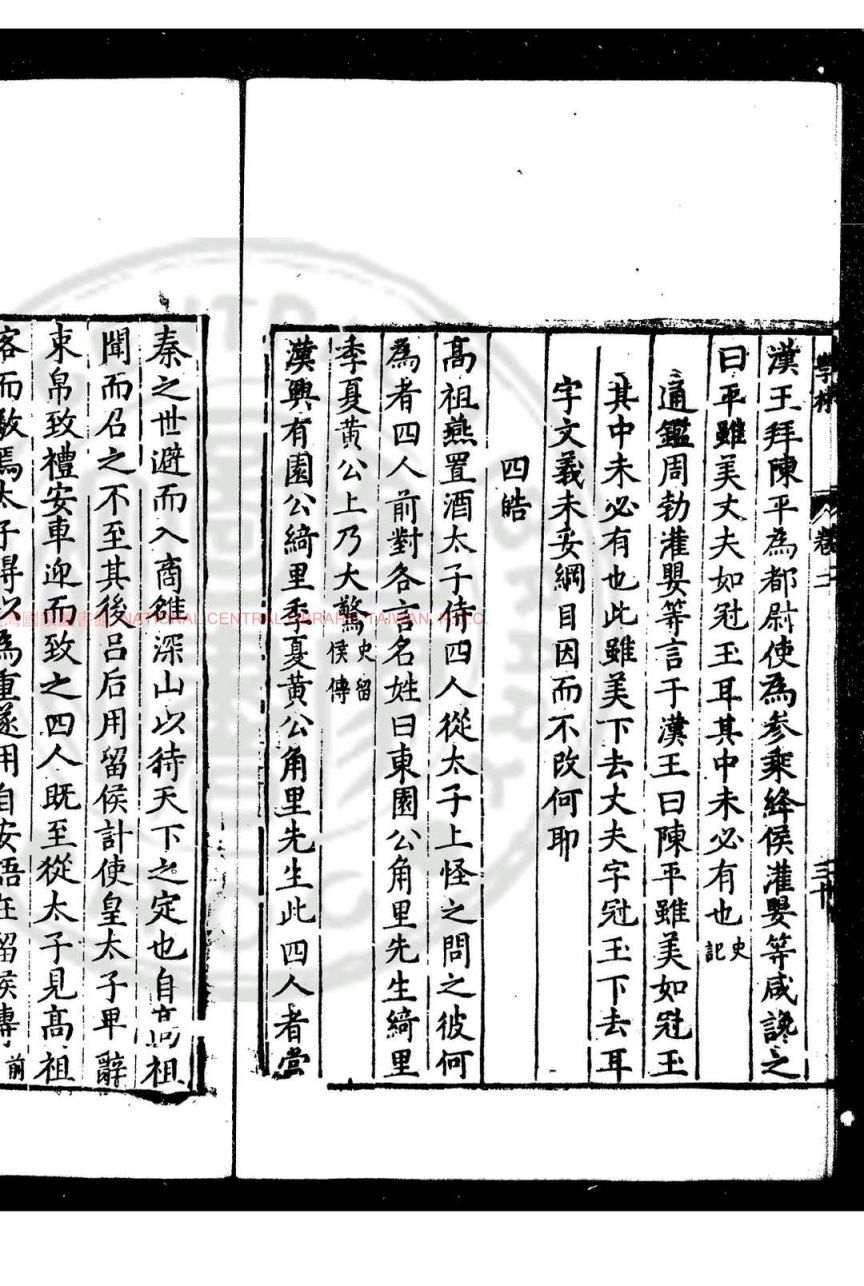 學林 卷二 三十
漢王拜陳平為都尉使為參乘絳侯灌嬰等咸讒之
曰平雖美丈夫如冠玉耳其中未必有也史記
通鑑周勃灌嬰等言于漢王曰陳平雖美如冠玉
其中未必有也此雖美下去丈夫字冠玉下去耳
字文義未妥綱目因而不改何耶
四皓
高祖燕置酒太子侍四人從太子上怪之問之彼何
為者四人前對各言名姓曰東園公角里先生綺里
季夏黃公上乃大驚史留侯傳
漢興有園公綺里季夏黃公角里先生此四人者當
秦之世避而入商雒深山以待天下之定也自高祖
聞而召之不至其後呂后用留侯計使皇太子卑辭
束帛致禮安車迎而致之四人既至從太子見高祖
客而敬焉太子得以為重遂用自安語在留侯傳前
NATIONAL CENTRAL LIBRARY, TAIWAN, R.O.C.